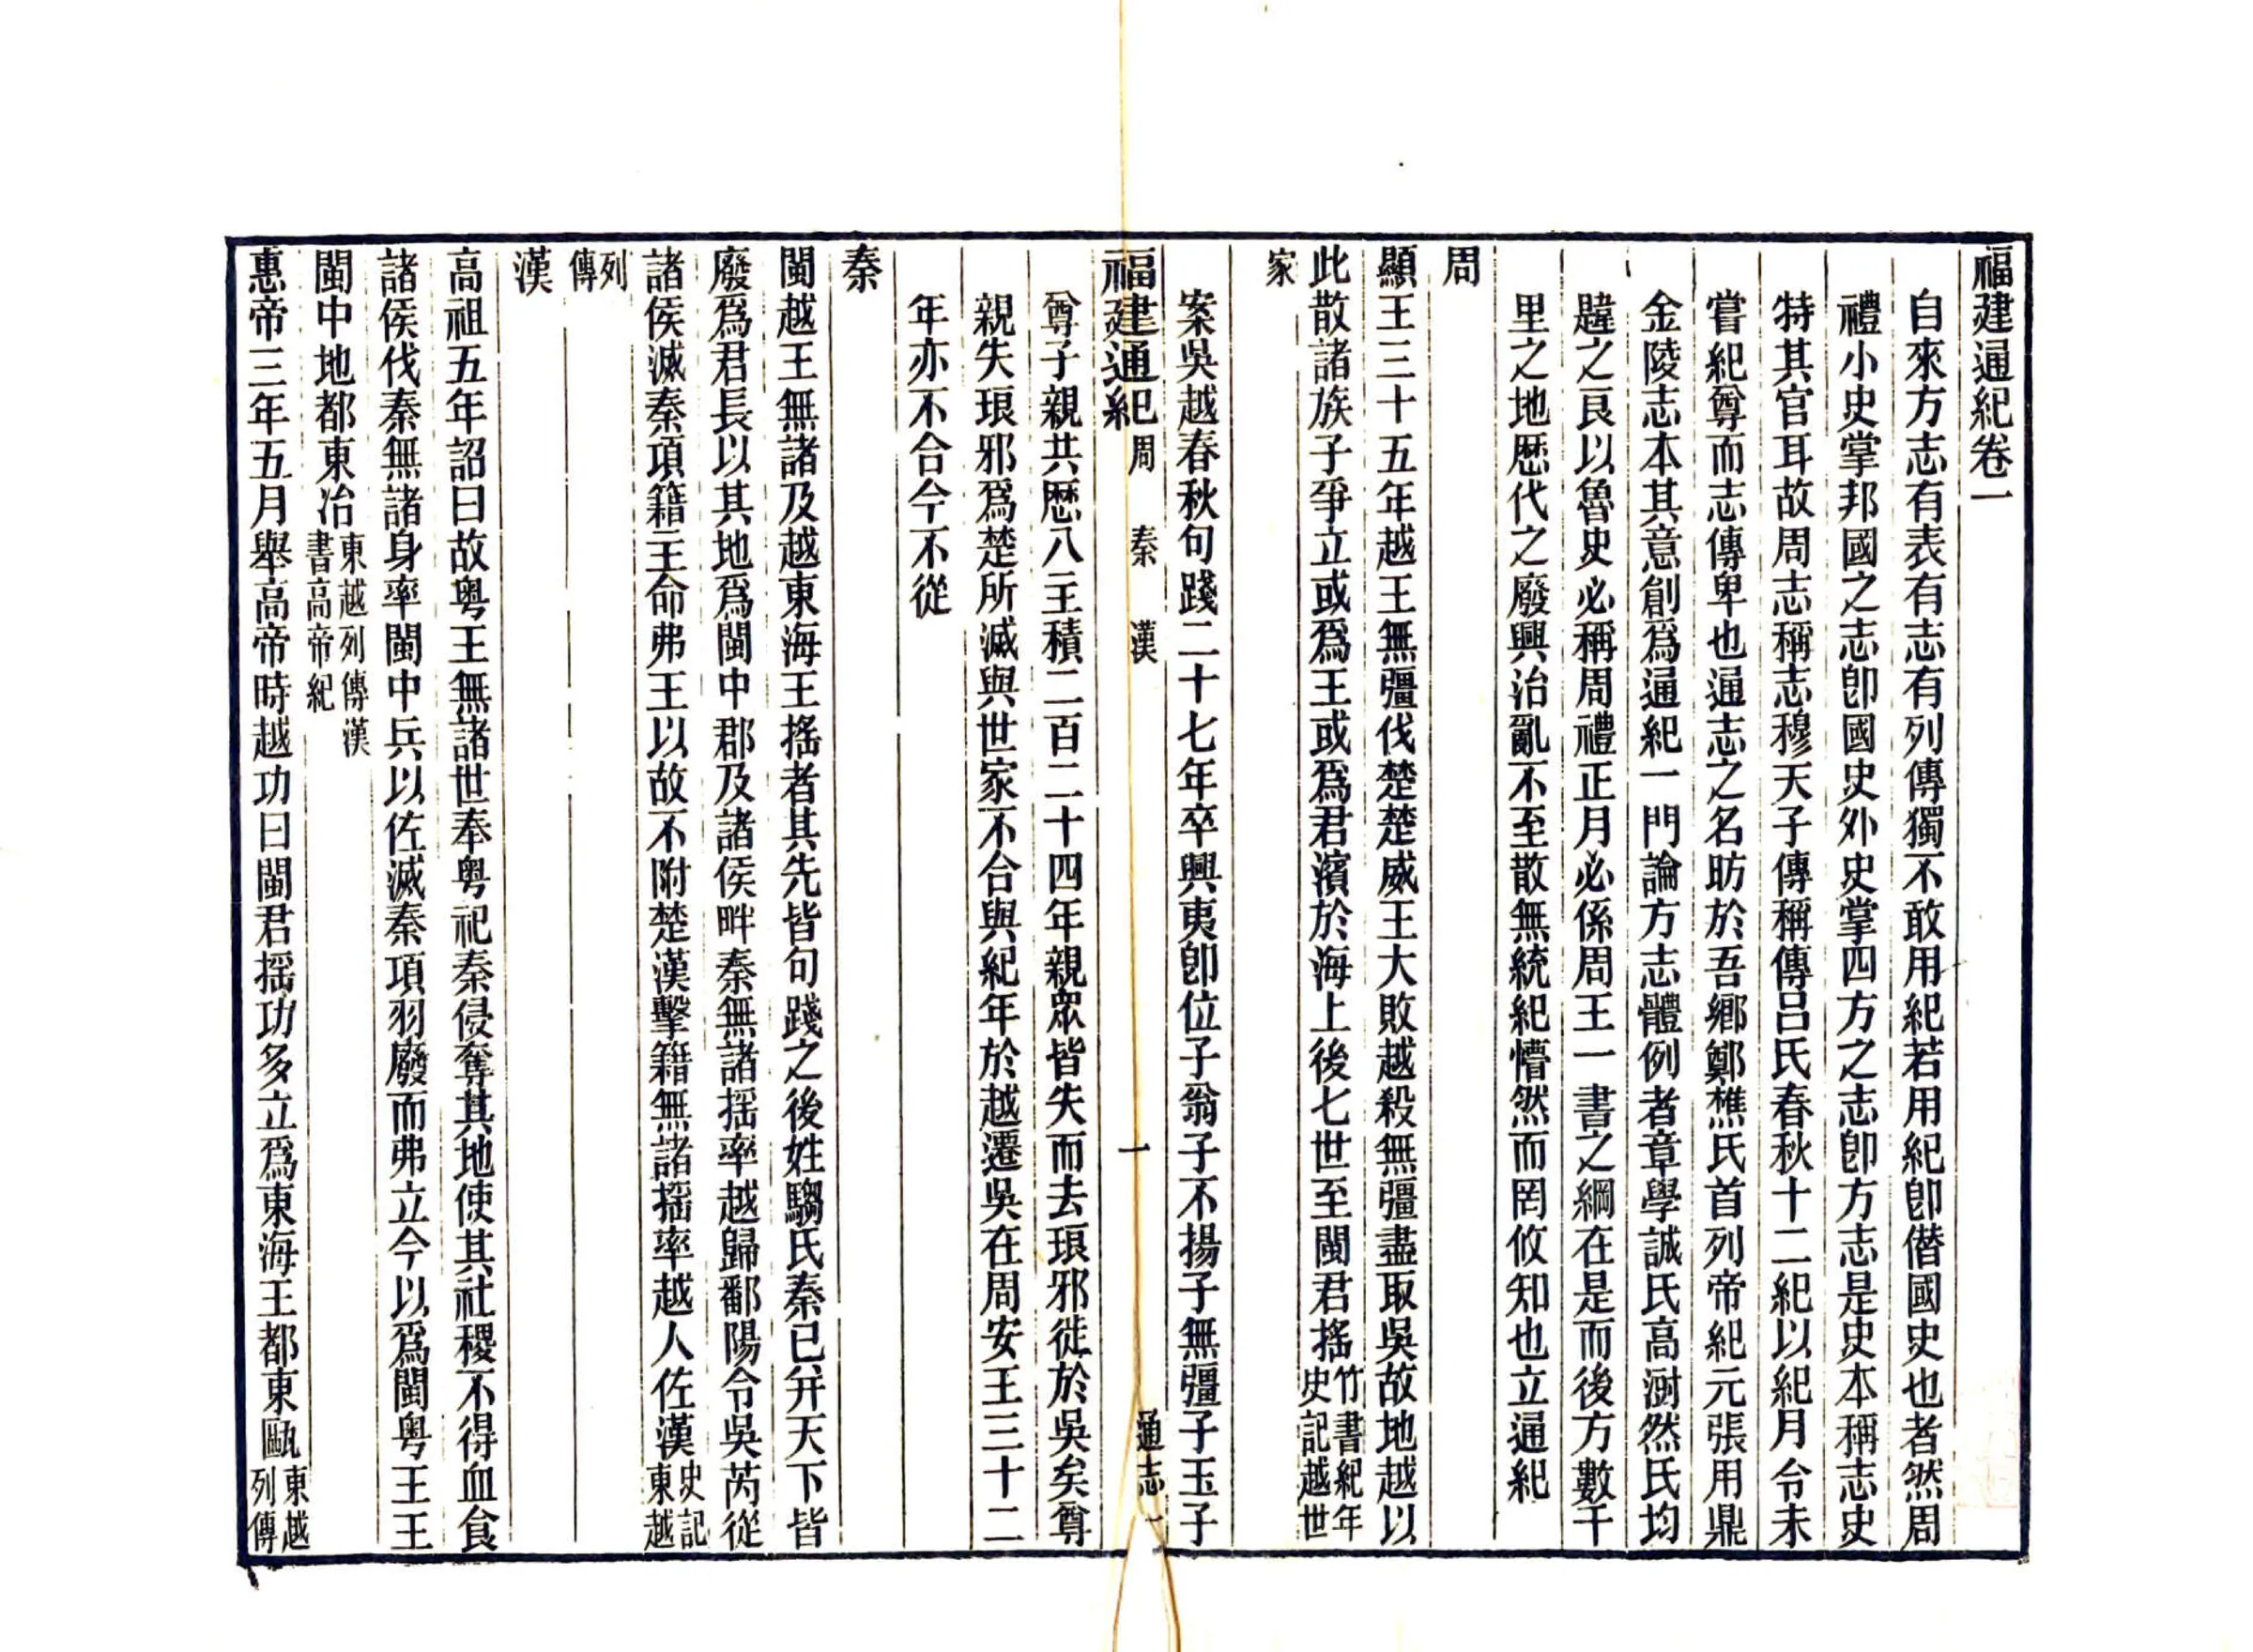 福建通紀卷一
自來方志有表有志有列傳獨不敢用紀若用紀卽僭國史也者然周
禮小史掌邦國之志卽國史外史掌四方之志卽方志是史本稱志史
特其官耳故周志稱志穆天子傳稱傳呂氏春秋十二紀以紀月令未
嘗紀尊而志傳卑也通志之名昉於吾鄉鄭樵氏首列帝紀元張用鼎
金陵志本其意創爲通紀一門論方志體例者章學誠氏高澍然氏均
韙之良以魯史必稱周禮正月必係周王一書之綱在是而後方數千
里之地歷代之廢興治亂不至散無統紀懵然而罔攸知也立通紀
周
顯王三十五年越王無彊伐楚楚威王大敗越殺無彊盡取吳故地越以
此散諸族子爭立或爲王或爲君濱於海上後七世至閩君搖竹書紀年
史記越世
家
案吳越春秋句踐二十七年卒興夷卽位子翁子不揚子無彊子玉子
福建通紀 周 秦 漢 一 通志一
尊子親共歷八主積二百二十四年親眾皆失而去琅邪徙於吳矣尊
親失琅邪爲楚所滅與世家不合與紀年於越遷吳在周安王三十二
年亦不合今不從
秦
閩越王無諸及越東海王搖者其先皆句踐之後姓騶氏秦已幷天下皆
廢爲君長以其地爲閩中郡及諸侯畔秦無諸搖率越歸鄱陽令吳芮從
諸侯滅秦項籍主命弗王以故不附楚漢擊籍無諸搖率越人佐漢史記
東越
列
傳
漢
高祖五年詔曰故粵王無諸世奉粵祀秦侵奪其地使其社稷不得血食
諸侯伐秦無諸身率閩中兵以佐滅秦項羽廢而弗立今以爲閩粵王王
閩中地都東冶東越列傳漢
書高帝紀
惠帝三年五月舉高帝時越功曰閩君搖功多立爲東海王都東甌東越
列傳